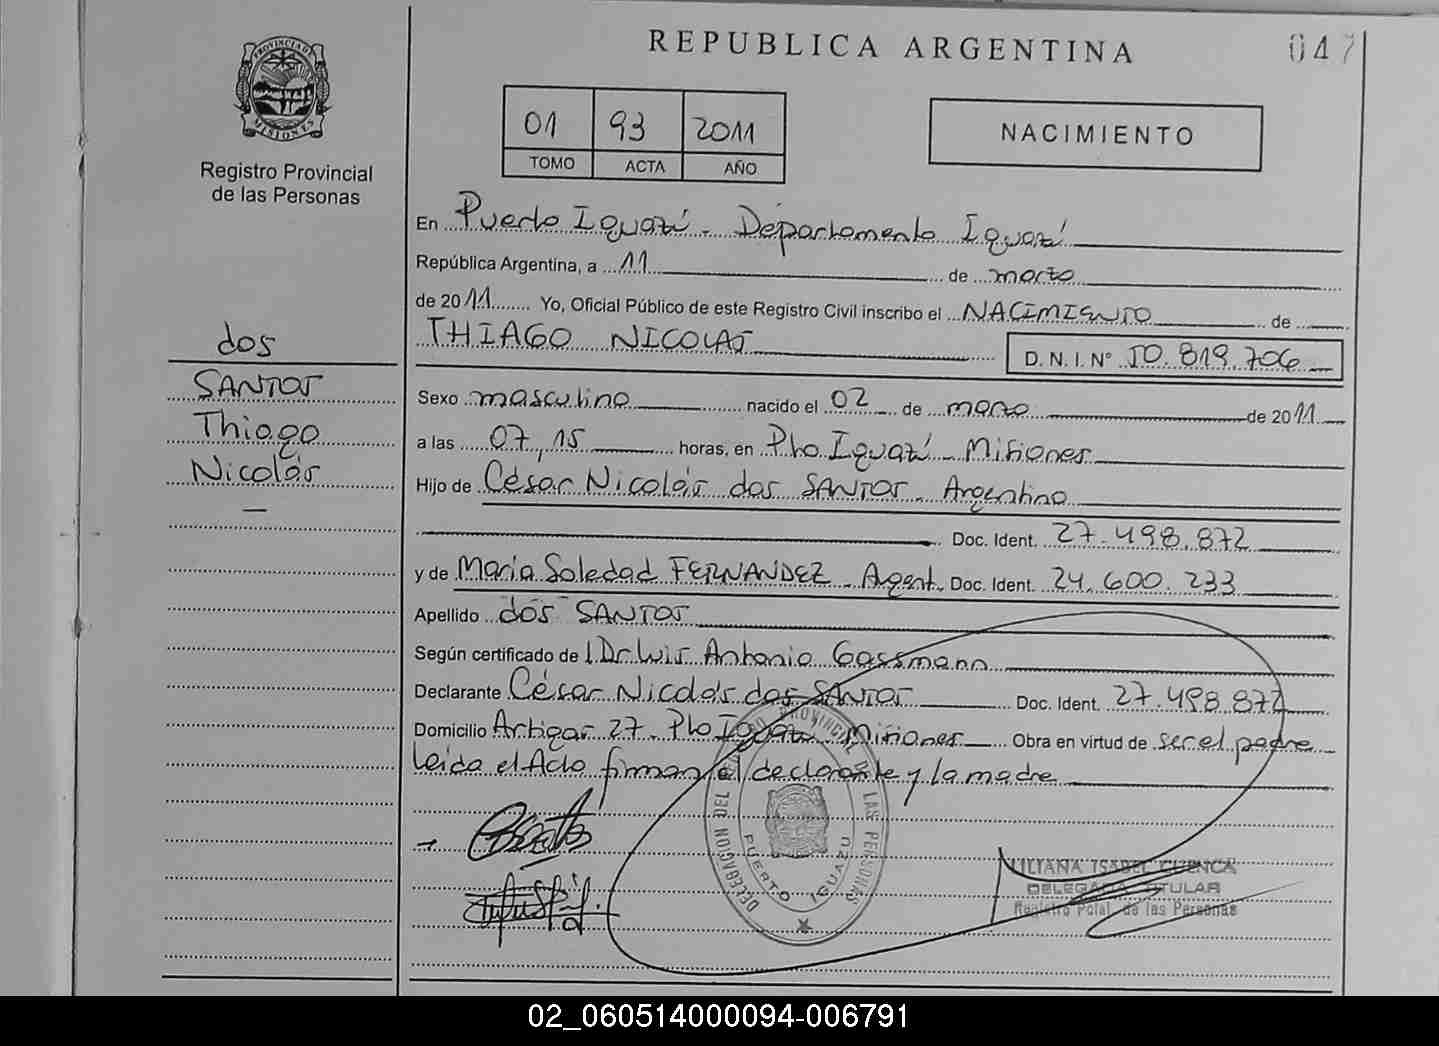 REPUBLICA ARGENTINA
047
PROVINCIA DE MISIONES
Registro Provincial
de las Personas
01 93 2011
TOMO ACTA AÑO
NACIMIENTO
En Puerto Iguazú - Departamento Iguazú
República Argentina, a 11 de marzo
de 2011 Yo, Oficial Público de este Registro Civil inscribo el NACIMIENTO de
THIAGO NICOLAS D. N. I. N° 50.819.706
dos
SANTOS
Thiago
Nicolás
Sexo masculino nacido el 02 de marzo de 2011
a las 07,15 horas, en Pto Iguazú - Misiones
Hijo de César Nicolás dos SANTOS - Argentino
Doc. Ident. 27.498.872
y de María Soledad FERNANDEZ - Argent. Doc. Ident. 24.600.233
Apellido dos SANTOS
Según certificado de Dr Luis Antonio Gassmann
Declarante César Nicolás dos SANTOS Doc. Ident. 27.498.872
Domicilio Artigas 27 - Pto Iguazú - Misiones Obra en virtud de ser el padre
Leída el Acta firman el declarante y la madre
DELEGACION DEL REGISTRO PROVINCIAL DE LAS PERSONAS
PUERTO IGUAZU
LILIANA ISABEL CUENCA
DELEGADA TITULAR
Registro Pcial. de las Personas
02_060514000094-006791